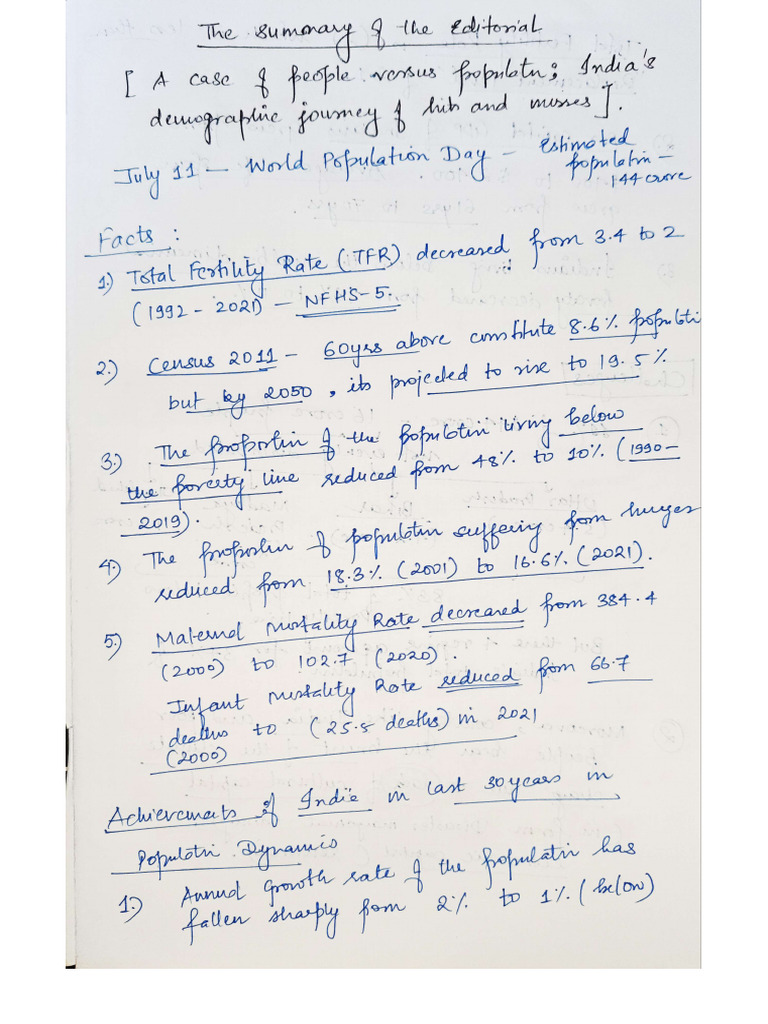 The Summary of the Editorial
[ A case of people versus populatn; India's
demographic journey of hits and misses ].
July 11 - World Population Day - Estimated
population -
144 crore
Facts :
1.) Total Fertility Rate (TFR) decreased from 3.4 to 2
(1992 - 2021) - NFHS-5.
2.) Census 2011 - 60yrs above constitute 8.6% populati
but by 2050, its projected to rise to 19.5%
3.) The proportin of the populatin living below
the poverty line reduced from 48% to 10% (1990 -
2019).
4.) The proportin of populatin suffering from hunger
reduced from 18.3% (2001) to 16.6% (2021).
5.) Maternal Mortality Rate decreased from 384.4
(2000) to 102.7 (2020).
Infant Mortality Rate reduced from 66.7
deaths to (25.5 deaths) in 2021
(2000)
Achievements of India in last 30 years in
Populatn Dynamics
1.) Annual Growth rate of the populatin has
fallen sharply from 2% to 1% (below)